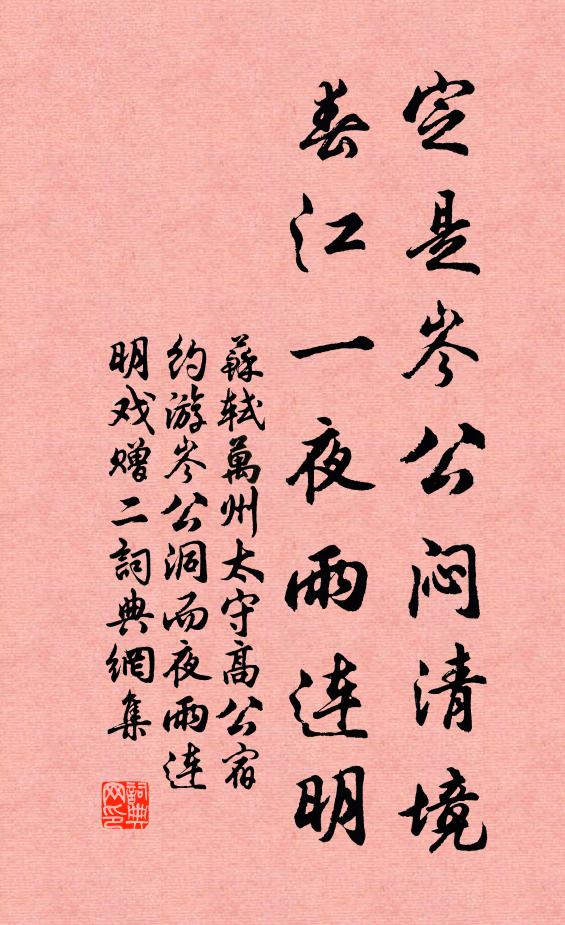 定是岑公闷清境
春江一夜雨连明
蘇轼萬州太守高公宿
约游岑公洞而夜雨连
明戏赠二詞典網集
詞典
网印